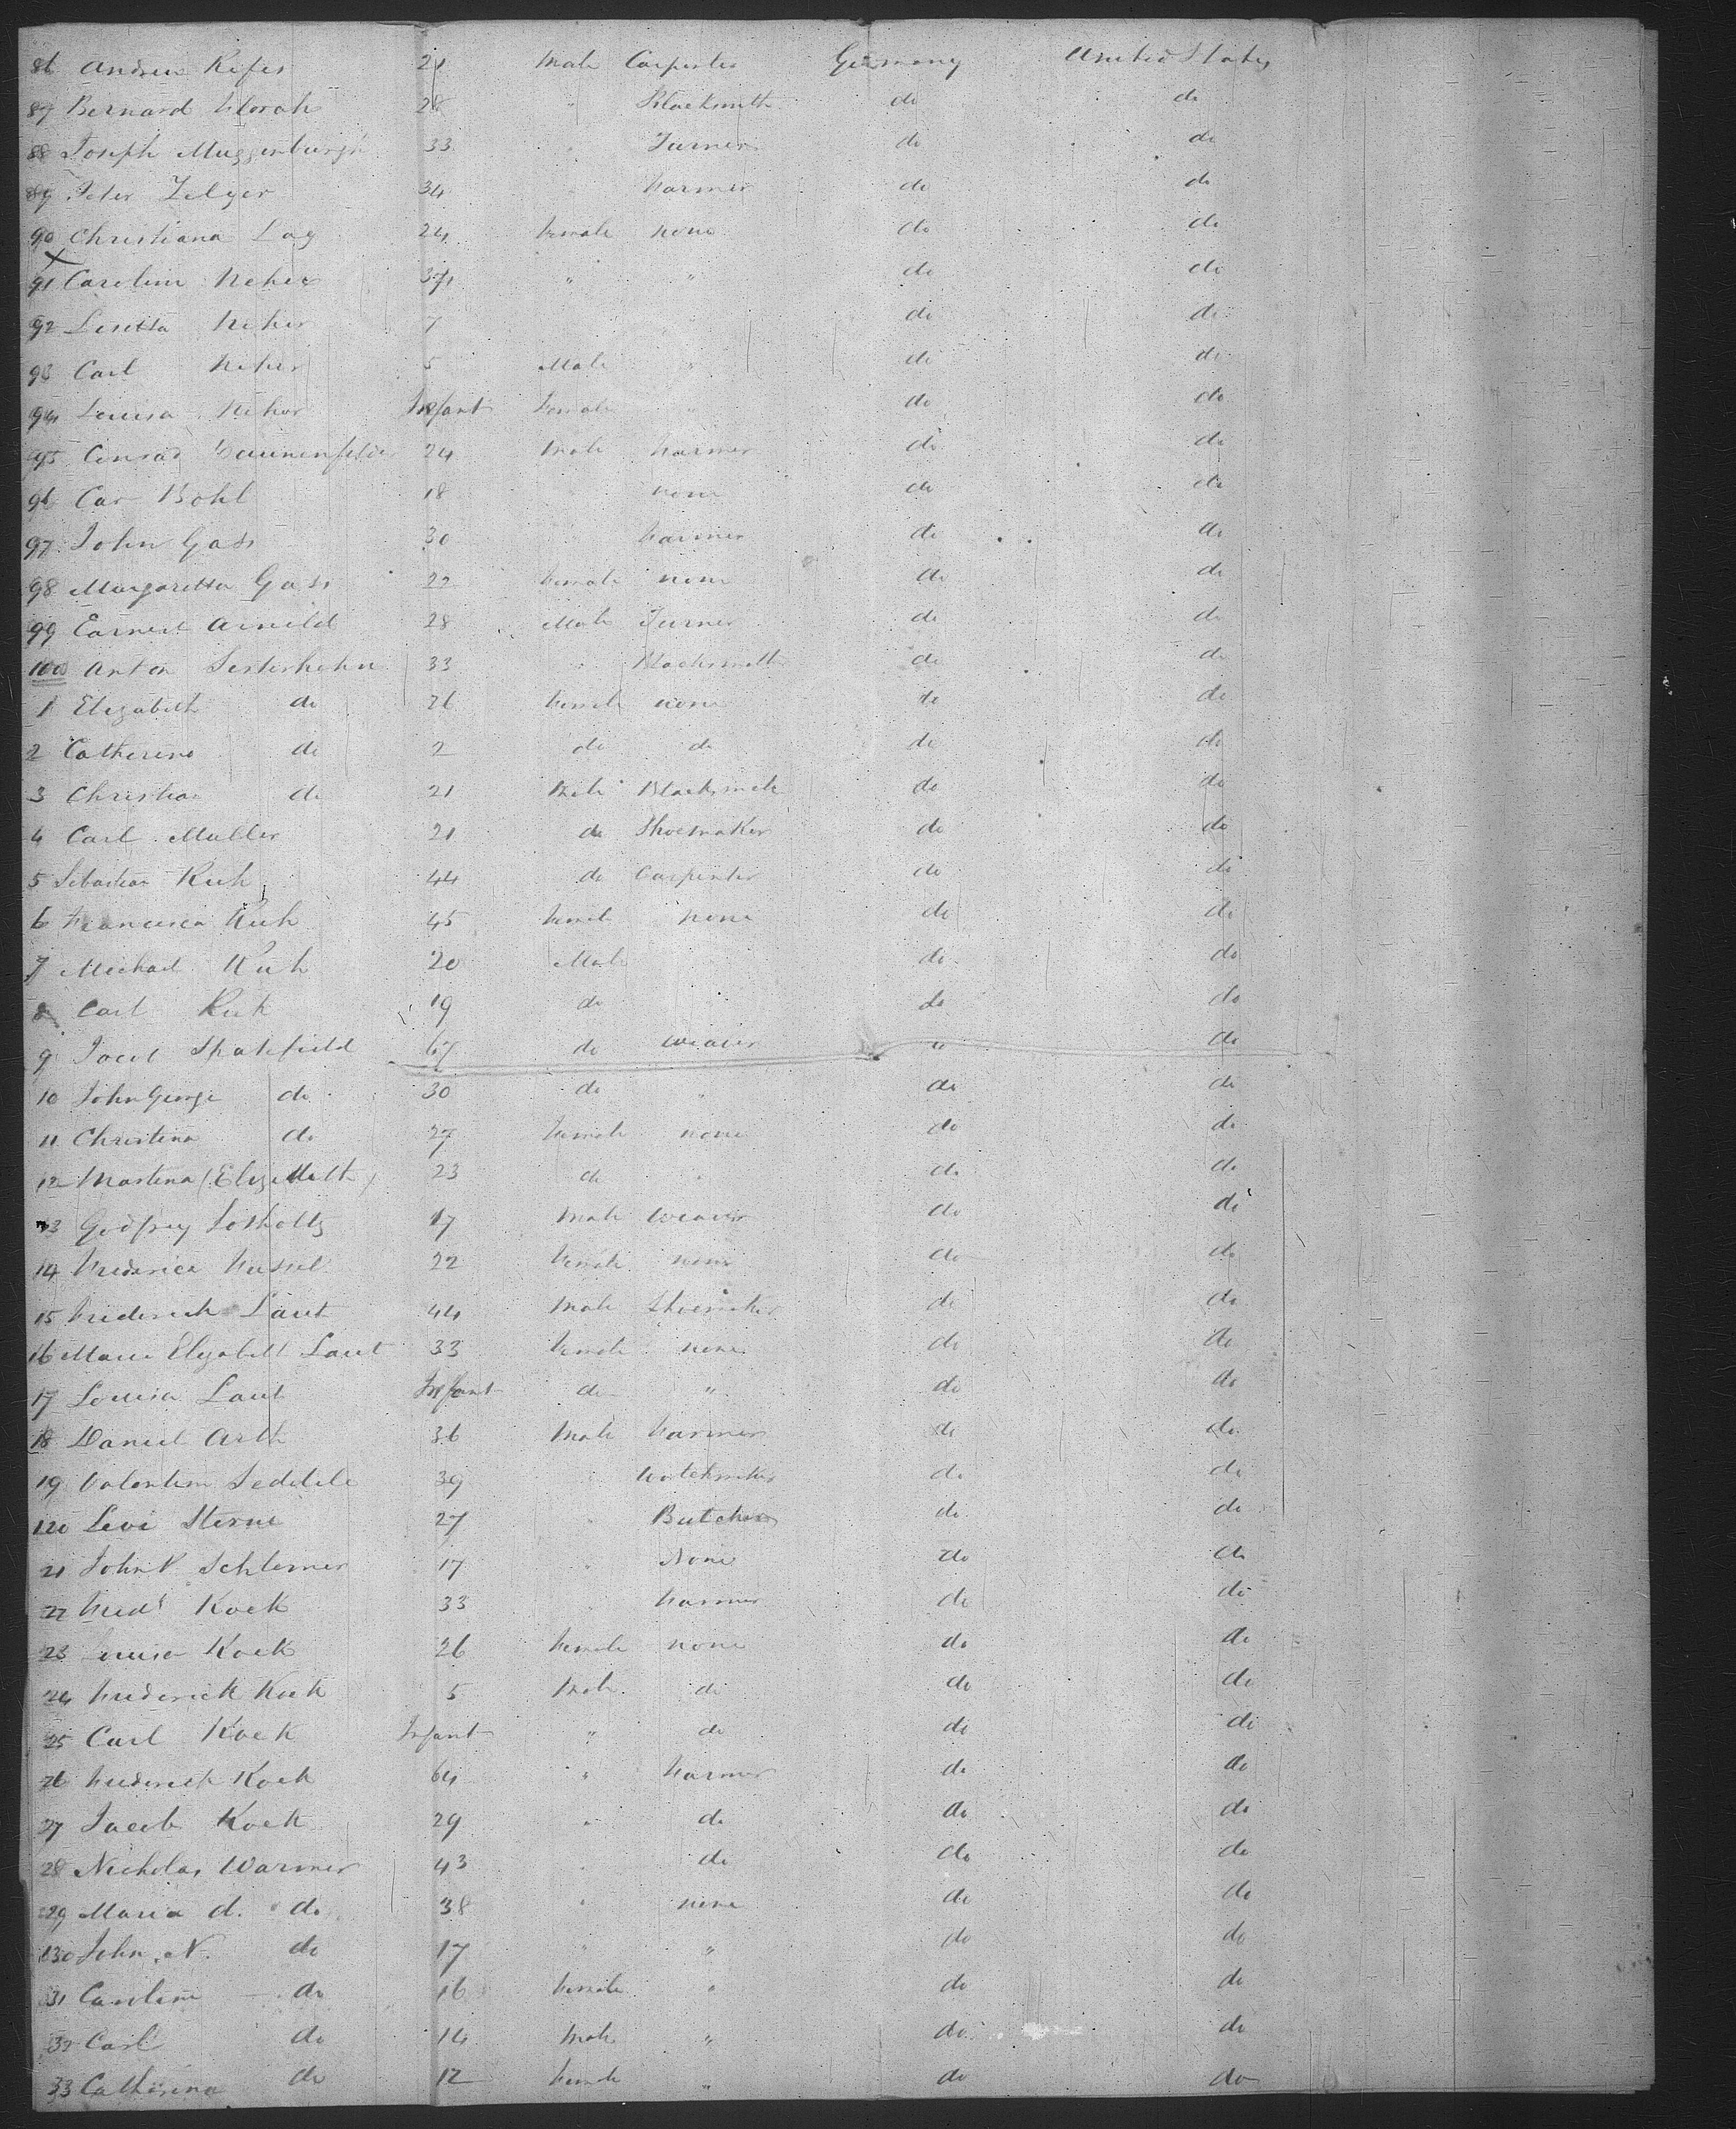 86 Andrew Kefer 21 Male Carpenter Germany United States
87 Bernard 28 " Blacksmith do do
88 Joseph Muggenburgh 33 " Turner do do
89 Peter Zelger 34 " Farmer do do
90 Christiana Lag 24 Female none do do
91 Caroline Neher 34 " " do do
92 Lisetta Neher 7 do do
93 Carl Neher 5 Male " do do
94 Louisa Neher Infant Female " do do
95 Conrad 24 Male Farmer do do
96 Car Bohl 18 none do do
97 John Gass 30 Farmer do do
98 Margaretta Gass 22 Female none do do
99 Earnest Arnild 28 Male Turner do do
100 Anton Sesterhehn 33 " Blacksmith do do
1 Elizabeth do 26 Female none do do
2 Catherine do 2 do do do do
3 Christian do 21 Male Blacksmith do do
4 Carl Muller 21 do Shoemaker do do
5 Sebastian Ruh 44 do Carpenter do do
6 Francisca Ruh 45 Female none do do
7 Michael Ruh 20 Male do do
8 Carl Ruh 19 do do do
9 Jacob Spatefield 67 do Weaver " do
10 John George do 30 do " do do
11 Christina do 27 Female none do do
12 Martena (Elizabeth) 23 do " do do
13 Godfrey Losholtz 17 Male Weaver do do
14 Frederica Fussel 22 Female none do do
15 Friderich Laut 44 Male Shoemaker do do
16 Marie Elizabeth Laut 33 Female none do do
17 Louisa Laut Infant do " do do
18 Daniel Arth 36 Male Farmer do do
19 Valentin Seddele 39 " Watchmaker do do
120 Levi Sterne 27 " Butcher do do
21 John P Schlemer 17 " None do do
22 Fredk Koek 33 " Farmer do do
23 Louisa Koek 26 Female none do do
24 Frederick Koek 5 Male do do do
25 Carl Koek Infant " do do do
26 Frederick Koek 64 " Farmer do do
27 Jacob Koek 29 " do do do
28 Nicholas Warmer 43 " do do do
29 Maria d. do 38 " none do do
130 John N. do 17 " " do do
31 Caroline do 16 Female " do do
32 Carl do 14 Male " do do
33 Catherina do 12 Female " do do